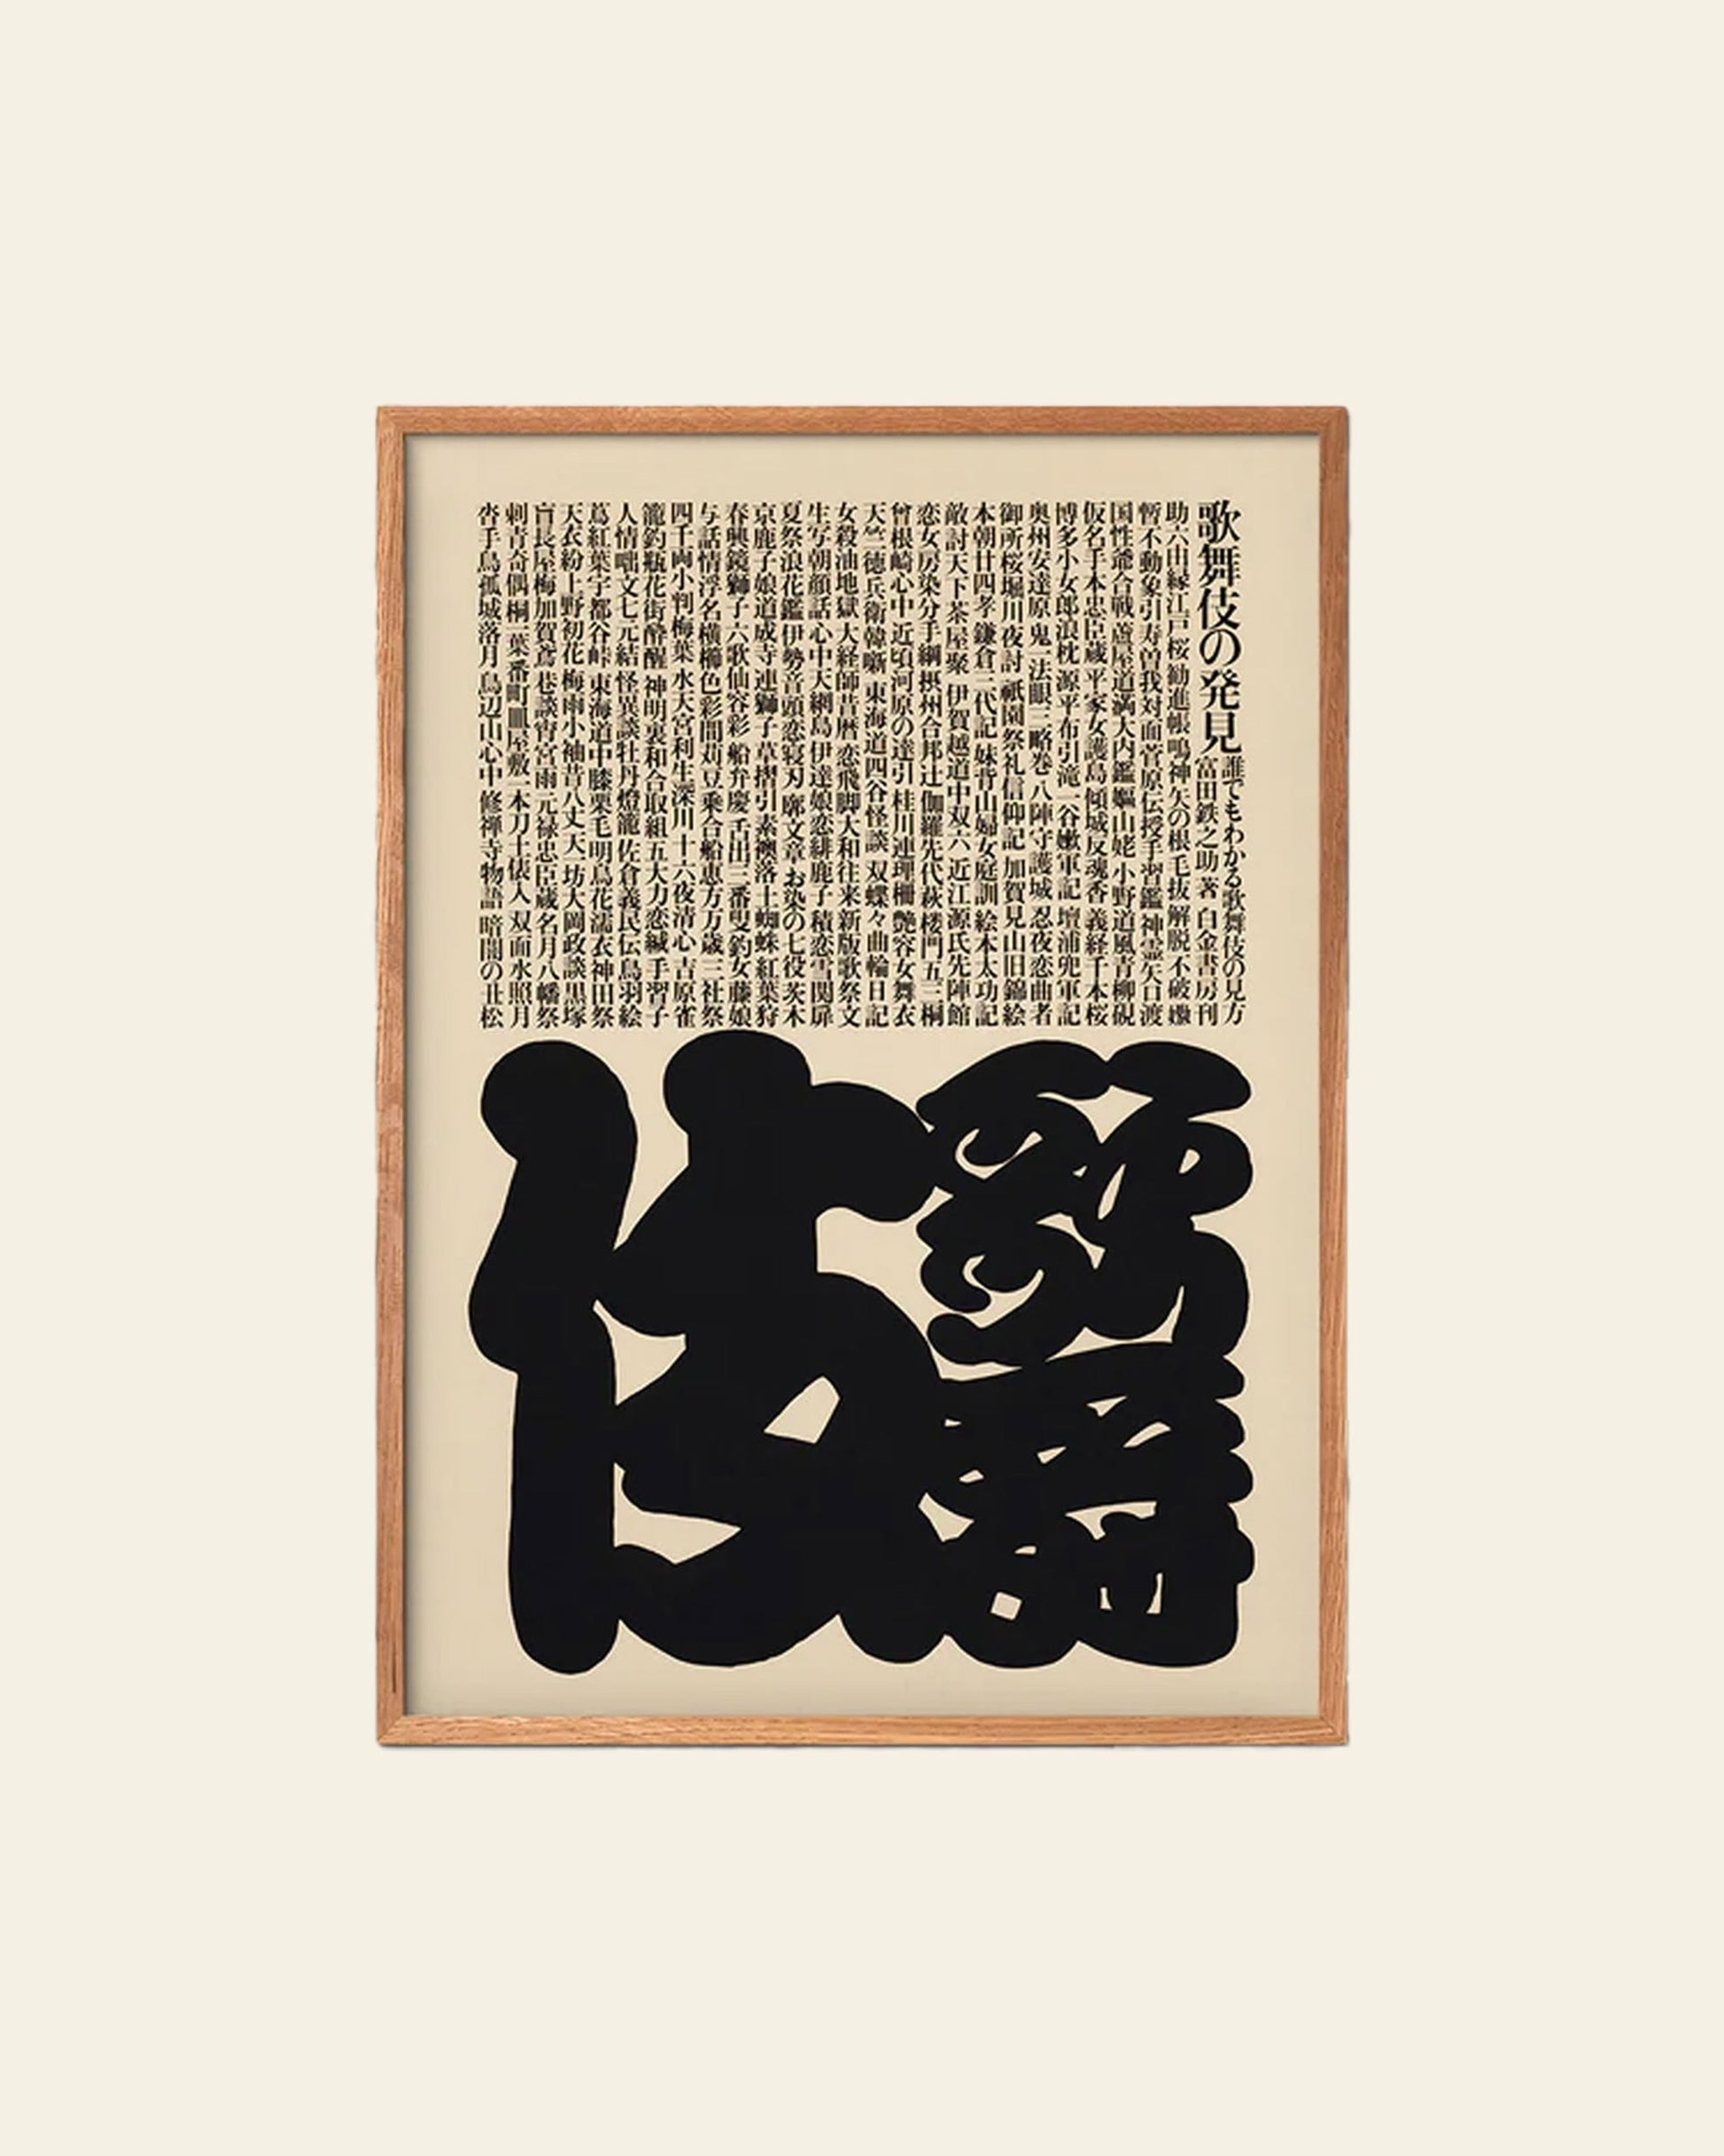 歌舞伎の発見
誰でもわかる歌舞伎の見方
富田鉄之助 著 白金書房刊
助六由縁江戸桜 勧進帳 鳴神 矢の根 毛抜 解脱 不破 嫐
暫 不動 象引 寿曽我対面 菅原伝授手習鑑 神霊矢口渡
国性爺合戦 蘆屋道満大内鑑 嫗山姥 小野道風青柳硯
仮名手本忠臣蔵 平家女護島 傾城反魂香 義経千本桜
博多小女郎浪枕 源平布引滝 一谷嫩軍記 壇浦兜軍記
奥州安達原 鬼一法眼三略巻 八陣守護城 忍夜恋曲者
御所桜堀川夜討 祇園祭礼信仰記 加賀見山旧錦絵
本朝廿四孝 鎌倉三代記 妹背山婦女庭訓 絵本太功記
敵討天下茶屋聚 伊賀越道中双六 近江源氏先陣館
恋女房染分手綱 摂州合邦辻 伽羅先代萩 楼門五三桐
曾根崎心中 近頃河原の達引 桂川連理柵 艶容女舞衣
天竺徳兵衛韓噺 東海道四谷怪談 双蝶々曲輪日記
女殺油地獄 大経師昔暦 恋飛脚大和往来 新版歌祭文
生写朝顔話 心中天網島 伊達娘恋緋鹿子 積恋雪関扉
夏祭浪花鑑 伊勢音頭恋寝刃 廓文章 お染の七役 茨木
京鹿子娘道成寺 連獅子 草摺引 素襖落 土蜘蛛 紅葉狩
春興鏡獅子 六歌仙容彩 船弁慶 舌出三番叟 釣女 藤娘
与話情浮名横櫛 色彩間苅豆 乗合船恵方万歳 三社祭
四千両小判梅葉 水天宮利生深川 十六夜清心 吉原雀
籠釣瓶花街酔醒 神明裏和合取組 五大力恋緘 手習子
人情咄文七元結 怪異談牡丹燈籠 佐倉義民伝 鳥羽絵
蔦紅葉宇都谷峠 東海道中膝栗毛 明烏花濡衣 神田祭
天衣紛上野初花 梅雨小袖昔八丈 天一坊大岡政談 黒塚
盲長屋梅加賀鳶 巷談宵宮雨 元禄忠臣蔵 名月八幡祭
刺青奇偶 桐一葉 番町皿屋敷 一本刀土俵入 双面水照月
沓手鳥孤城落月 鳥辺山心中 修禅寺物語 暗闇の丑松
歌舞
伎